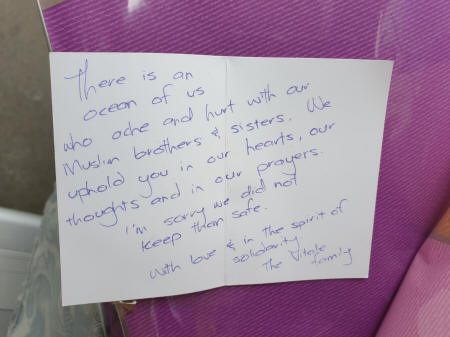 There is an
ocean of us
who ache and hurt with our
Muslim brothers & sisters. We
uphold you in our hearts, our
thoughts and in our prayers.
I'm sorry we did not
keep them safe.
With love & in the spirit of
solidarity
The Vitale
family